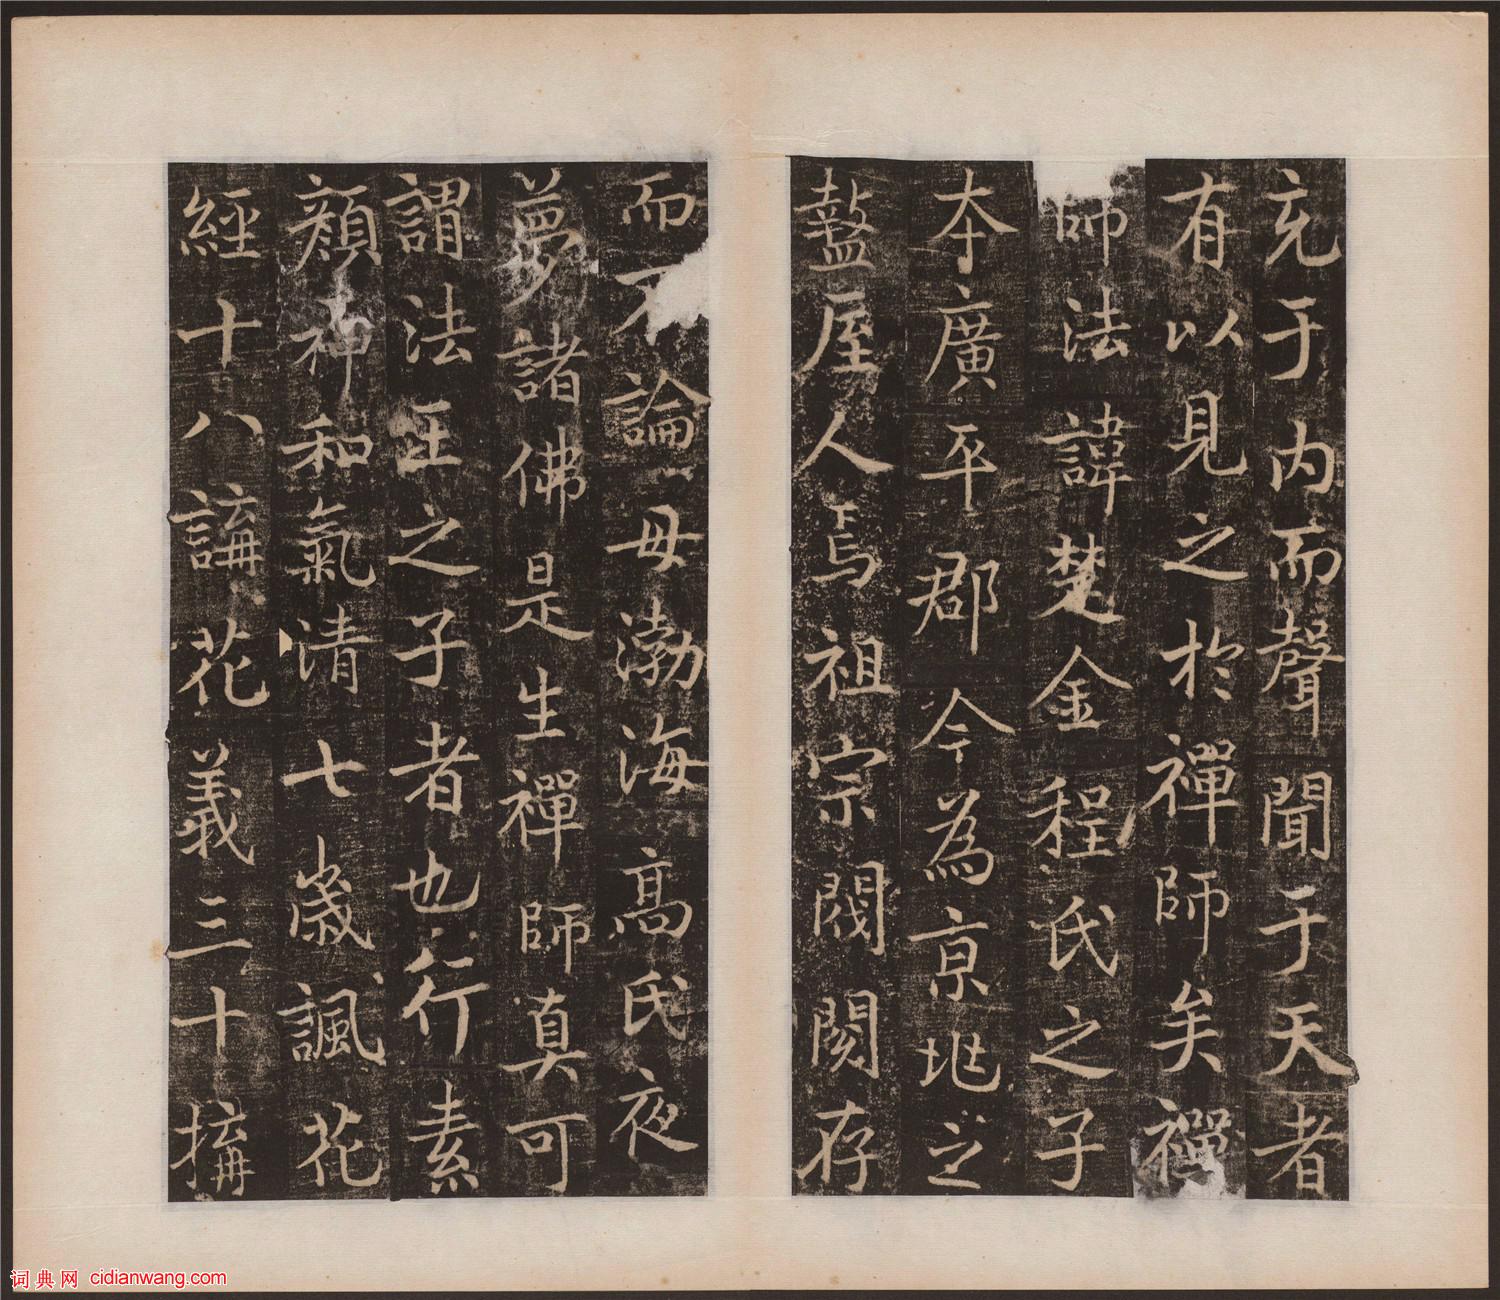 充于內而聲聞于天者
有以見之於禪師矣禪
師法諱楚金程氏之子
夲廣平郡今為京地之
盩厔人焉祖宗閥閱存
而不論母渤海高氏夜
夢諸佛是生禪師真可
謂法王之子者也行素
顏神和氣清七歲諷花
經十八講花義三十搆
词典网 cidianwang.com